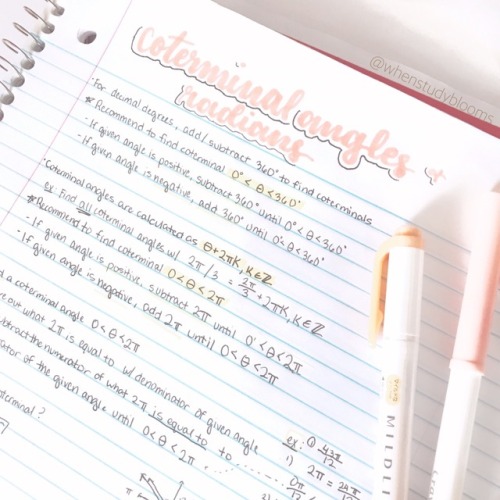 @whenstudyblooms
Coterminal angles +
radians
·For decimal degrees, add/subtract 360° to find coterminals
*Recommend to find coterminal 0° < θ < 360°
- If given angle is positive, subtract 360° until 0° < θ < 360°
- If given angle is negative, add 360° until 0° < θ < 360°
·Coterminal angles are calculated as θ + 2πK, K ∈ ℤ
ex. Find all coterminal angles w/ 2π/3 = 2π/3 + 2πK, K ∈ ℤ
*Recommend to find coterminal 0 < θ < 2π
- If given angle is positive, subtract 2π until 0° < θ < 2π
- If given angle is negative, add 2π until 0 < θ < 2π
d a coterminal angle 0 < θ < 2π
out what 2π is equal to w/ denominator of given angle
ubtract the numerator of what 2π is equal to to
ator of the given angle until 0 < θ < 2π
oterminal?
ex: ① 43π/12
1) 2π = 24π
MILDLI